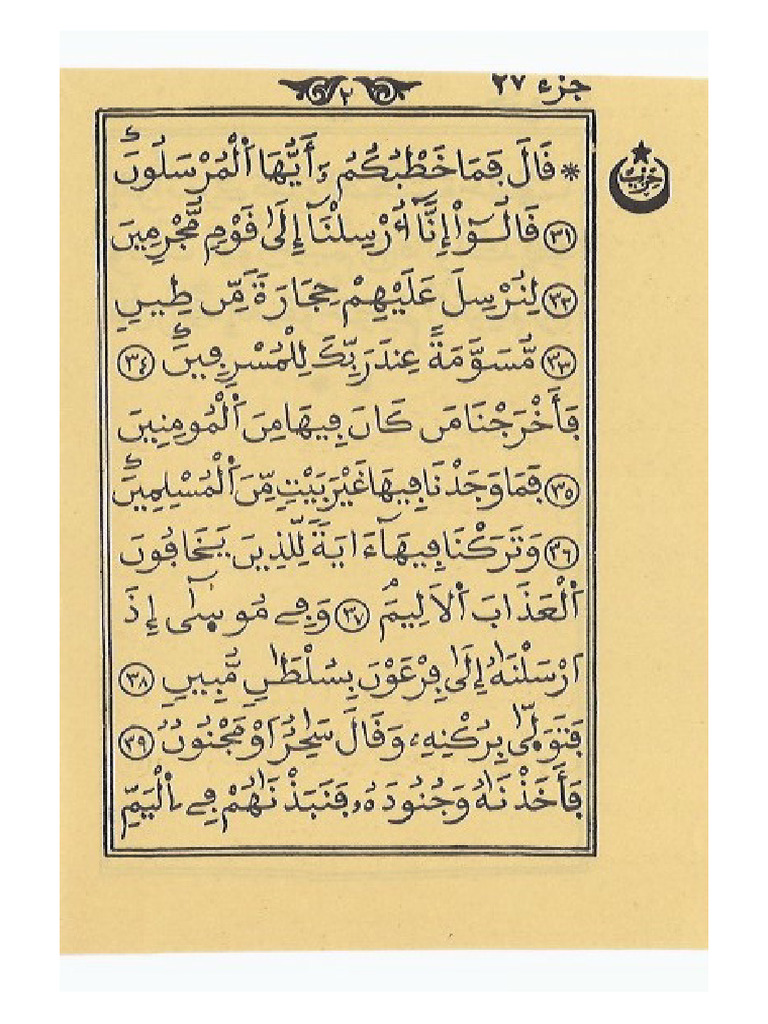 جزء ٢٧
٢
حزب
* قَالَ فَمَا خَطْبُكُمُۥٓ أَيُّهَا اَ۬لْمُرْسَلُونَۖ
٣١ قَالُوٓاْ إِنَّآ أُرْسِلْنَآ إِلَىٰ قَوْمٖ مُّجْرِمِينَ
٣٢ لِنُرْسِلَ عَلَيْهِمْ حِجَارَةٗ مِّن طِينٖ
٣٣ مُّسَوَّمَةً عِندَ رَبِّكَ لِلْمُسْرِفِينَۖ ٣٤
فَأَخْرَجْنَا مَن كَانَ فِيهَا مِنَ اَ۬لْمُومِنِينَ
٣٥ فَمَا وَجَدْنَا فِيهَا غَيْرَ بَيْتٖ مِّنَ اَ۬لْمُسْلِمِينَۖ
٣٦ وَتَرَكْنَا فِيهَآ ءَايَةٗ لِّلذِينَ يَخَافُونَ
اَ۬لْعَذَابَ اَ۬لَالِيمَۖ ٣٧ وَفِے مُوسَىٰٓ إِذَ
اَرْسَلْنَٰهُ إِلَىٰ فِرْعَوْنَ بِسُلْطَٰنٖ مُّبِينٖ ٣٨
فَتَوَلَّىٰ بِرُكْنِهِۦ وَقَالَ سَٰحِرٌ اَوْ مَجْنُونٞ ٣٩
فَأَخَذْنَٰهُ وَجُنُودَهُۥ فَنَبَذْنَٰهُمْ فِے اِ۬لْيَمِّ